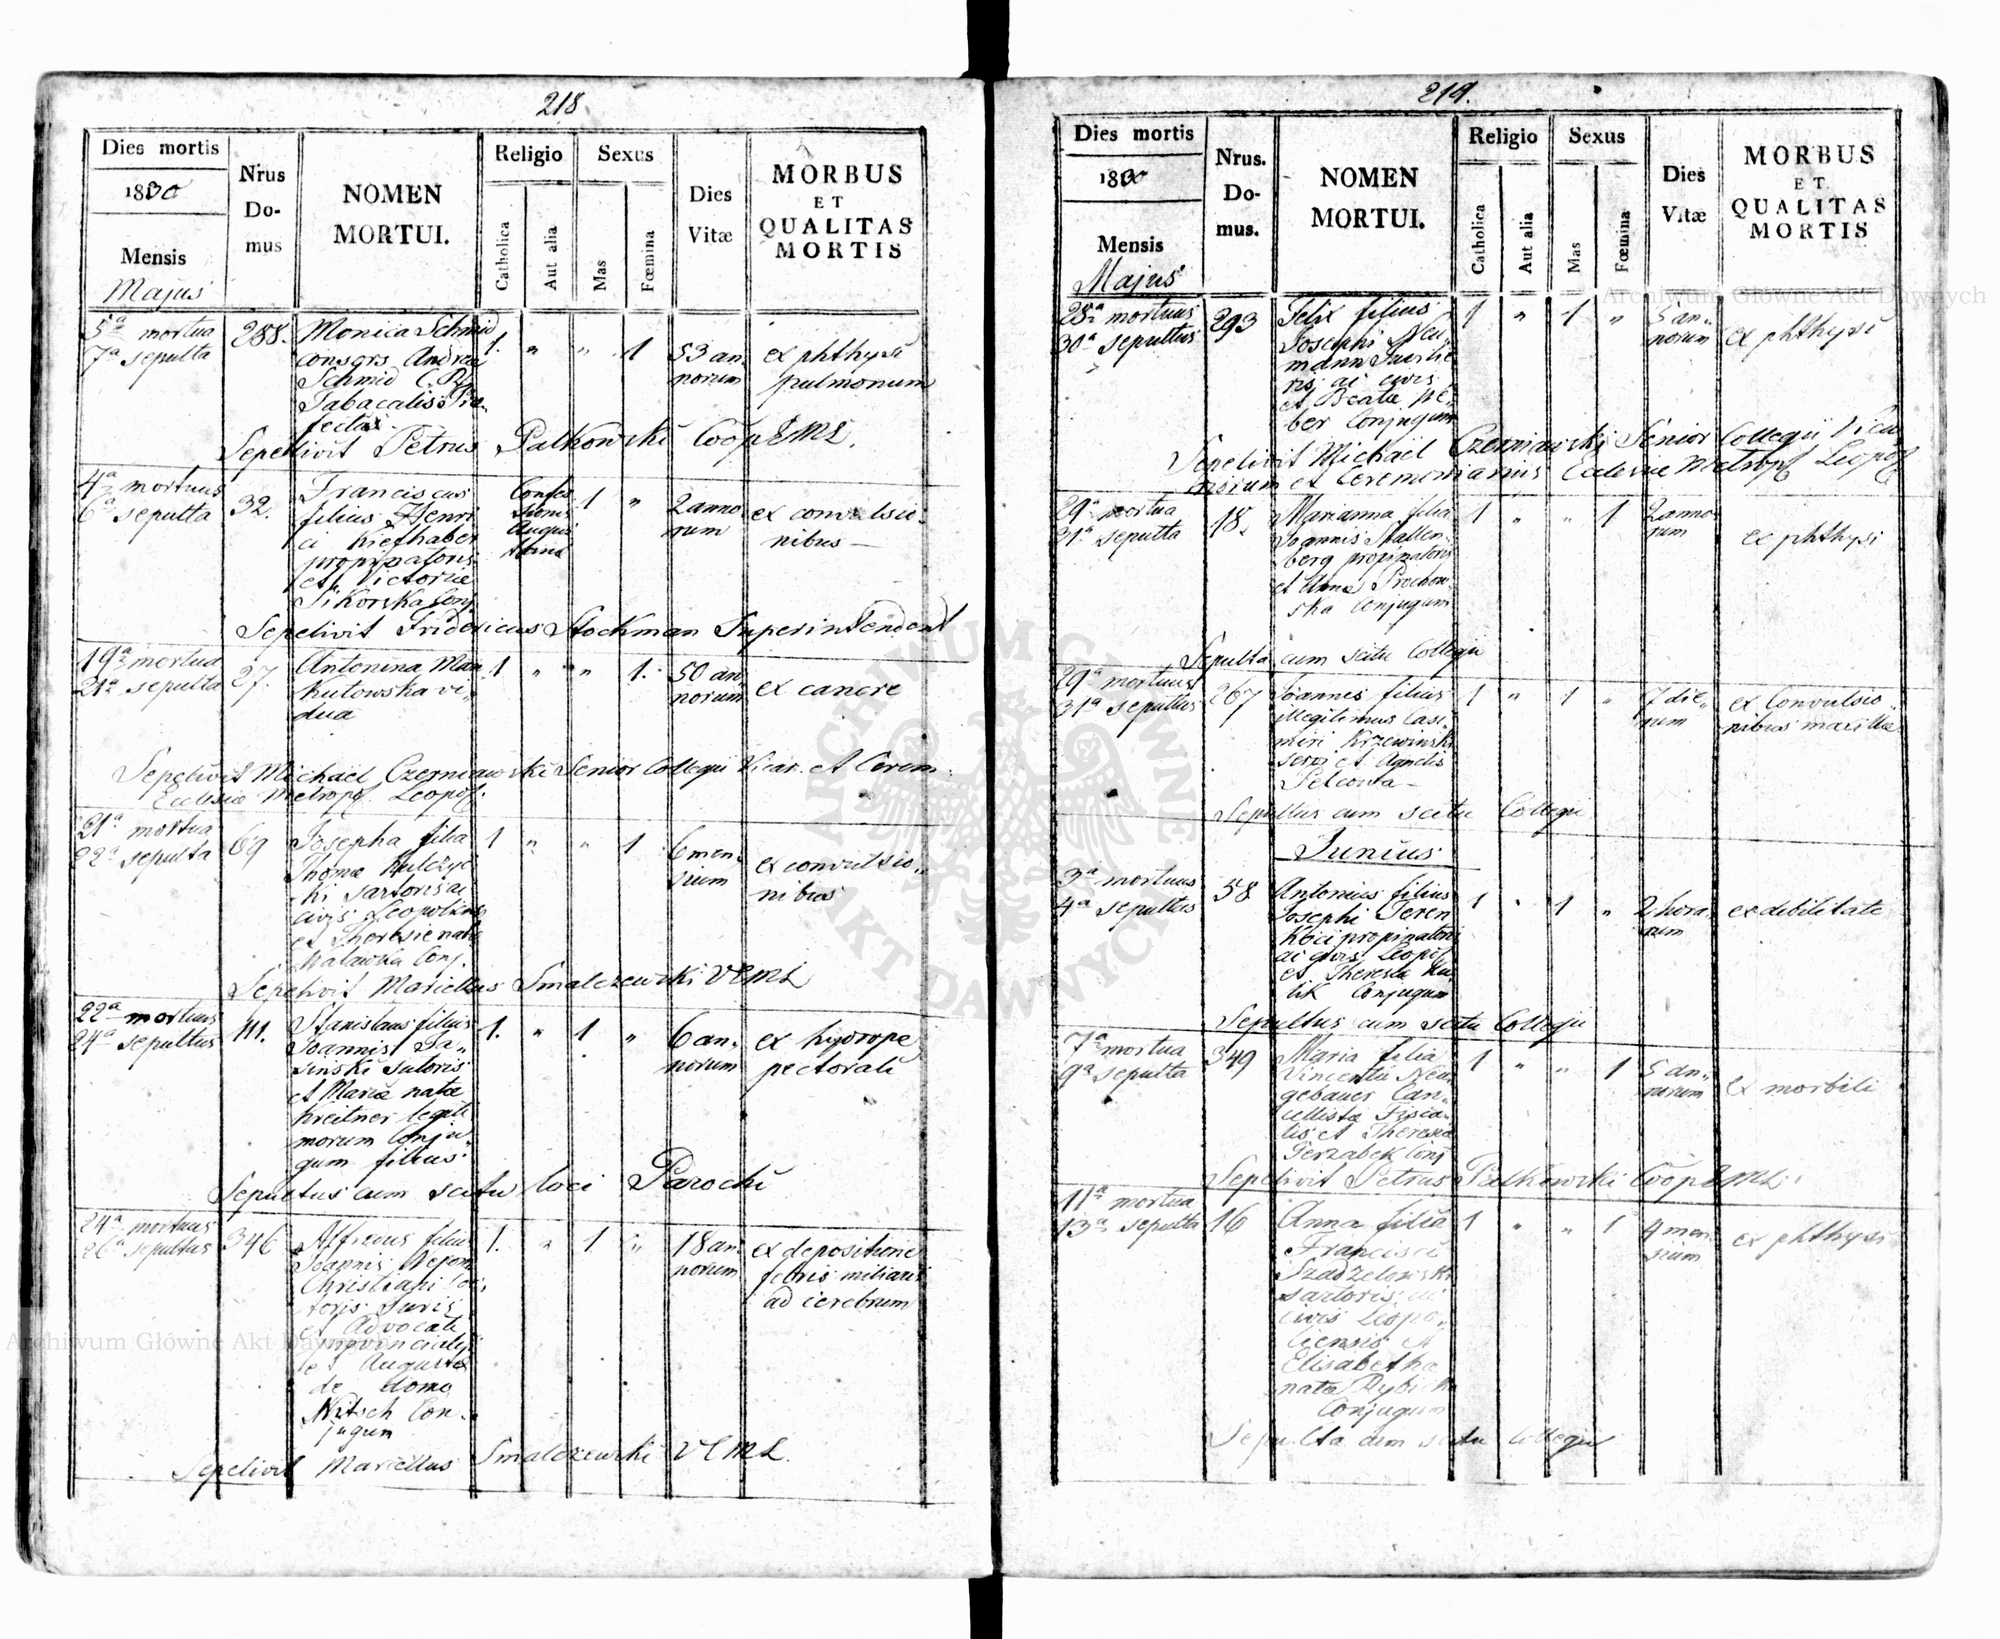 218
Dies mortis
1830
Mensis
Majus
Nrus Do-mus
NOMEN MORTUI.
Religio
Catholica
Aut alia
Sexus
Mas
Fœmina
Dies Vitæ
MORBUS ET QUALITAS MORTIS
5ª mortua
7ª sepulta
288.
Monica Schmid
consors Andreæ
Schmid C. R.
Tabacalis Præ-
fecti
1. " " 1
53 an-
norum
ex phthysi
pulmonum
Sepelivit Petrus Palkowski CoopEML.
4ª mortuus
6ª sepulta
32.
Franciscus
filius Henri
ci Kiefhaber
propinatoris
et Victoriæ
Sikorska Conj.
Confes
sionis
Augus
tana
1 "
2 anno
rum
ex convulsio-
nibus —
Sepelivit Fridericus Stockman Superintendent
19ª mortua
21ª sepulta
27.
Antonina Man
kutowska vi-
dua
1 " " 1.
50 an-
norum
ex cancre
Sepelivit Michaël Czerniawski Senior Collegii Vicar. et Cerem.
Eclesiæ Metrop. Leopol.
21ª mortua
22ª sepulta
69
Josepha filia
Thomæ Kulczyc
ki Sartoris ac
civis Leopoliens
et Theresiæ nata
Malawka Conj.
1 " " 1
6 men-
sium
ex convulsio-
nibus
Sepelivit Marcellus Smalczewski VEML
22ª mortuus
24ª sepultus
411.
Stanislaus filius
Joannis Ja-
sinski Sutoris
et Maria nata
Kreitner legiti
morum Conju-
gum filius
1. " 1 "
6 an-
norum
ex hydrope
pectorali
Sepultus cum scitu loci Parochi
24ª mortuus
26ª sepultus
346
Alfredus filius
Joannis Nepom
Christiani Doc-
toris Juris
et Advocati
provincialis
et Augusta
de domo
Nitsch Con-
jugum
1. " 1 "
18 an-
norum
ex depositione
febris miliaris
ad cerebrum
Sepelivit Marcellus Smalczewski VEML.
219.
Dies mortis
1830
Mensis
Majus
Nrus. Do-mus.
NOMEN MORTUI.
Religio
Catholica
Aut alia
Sexus
Mas
Fœmina
Dies Vitæ
MORBUS ET QUALITAS MORTIS
28ª mortuus
30ª sepultus
293
Felix filius
Josephi Neu-
mann
ac civis
et Beatæ We-
ber Conjugum
1 " 1 "
5 an-
norum
ex phthysi
Sepelivit Michaël Czerniawski Senior Collegii Vica
riorum et Ceremoniarius Eclesiæ Metrop. Leopol.
29ª mortua
31ª sepulta
18.
Marianna filia
Joannis Stallen-
berg propinatoris
et Anna Prochow
ska Conjugum
1 " " 1
2 anno
rum
ex phthysi
Sepulta cum scitu Collegii
29ª mortuus
31ª sepultus
267
Joannes filius
illegitimus Casi-
miri Krzewinski
servi et Agnetis
Petcowa —
1 " 1 "
7 die-
rum
ex Convulsio-
nibus maxillæ
Sepultus cum scitu Collegii
Junius
3ª mortuus
4ª sepultus
58
Antonius filius
Josephi Teren
koci propinatoris
ac civis Leopol
et Theresia Ku
lik Conjugum
1 " 1 "
2 hora-
rum
ex debilitate
Sepultus cum scitu Collegii
7ª mortua
9ª sepulta
349
Maria filia
Vincentii Neu-
gebauer Can-
cellista Fisca-
lis et Theresia
Gerzabek Conj
1 " " 1
5 an-
norum
ex morbili
Sepelivit Petrus Palkowski CoopEML.
11ª mortua
13ª sepulta
16
Anna filia
Francisci
Szadzelowski
Sartoris ac
civis Leopo-
liensis et
Elisabetha
nata Rybicka
Conjugum
1 " " 1
4 men-
sium
ex phthysi
Sepulta cum scitu Collegii
Archiwum Główne Akt Dawnych
Archiwum Główne Akt Dawnych
ARCHIWUM GŁÓWNE AKT DAWNYCH